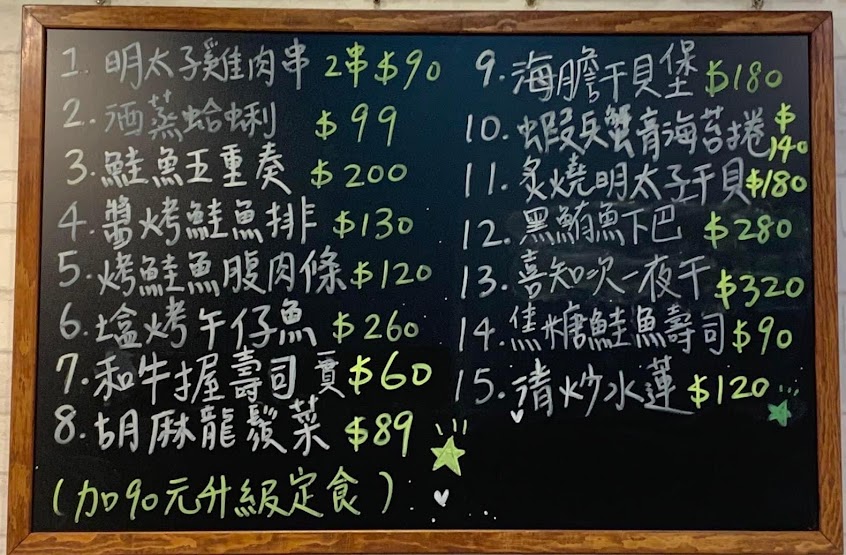 1. 明太子雞肉串 2串$90
2. 酒蒸蛤蜊 $99
3. 鮭魚五重奏 $200
4. 醬烤鮭魚排 $130
5. 烤鮭魚腹肉條 $120
6. 塩烤午仔魚 $260
7. 和牛握壽司 一貫 $60
8. 胡麻龍鬚菜 $89
(加90元升級定食)
9. 海膽干貝堡 $180
10. 蝦兵蟹膏海苔捲 $140
11. 炙燒明太子干貝 $180
12. 黑鮪魚下巴 $280
13. 喜知次一夜干 $320
14. 焦糖鮭魚壽司 $90
15. 清炒水蓮 $120